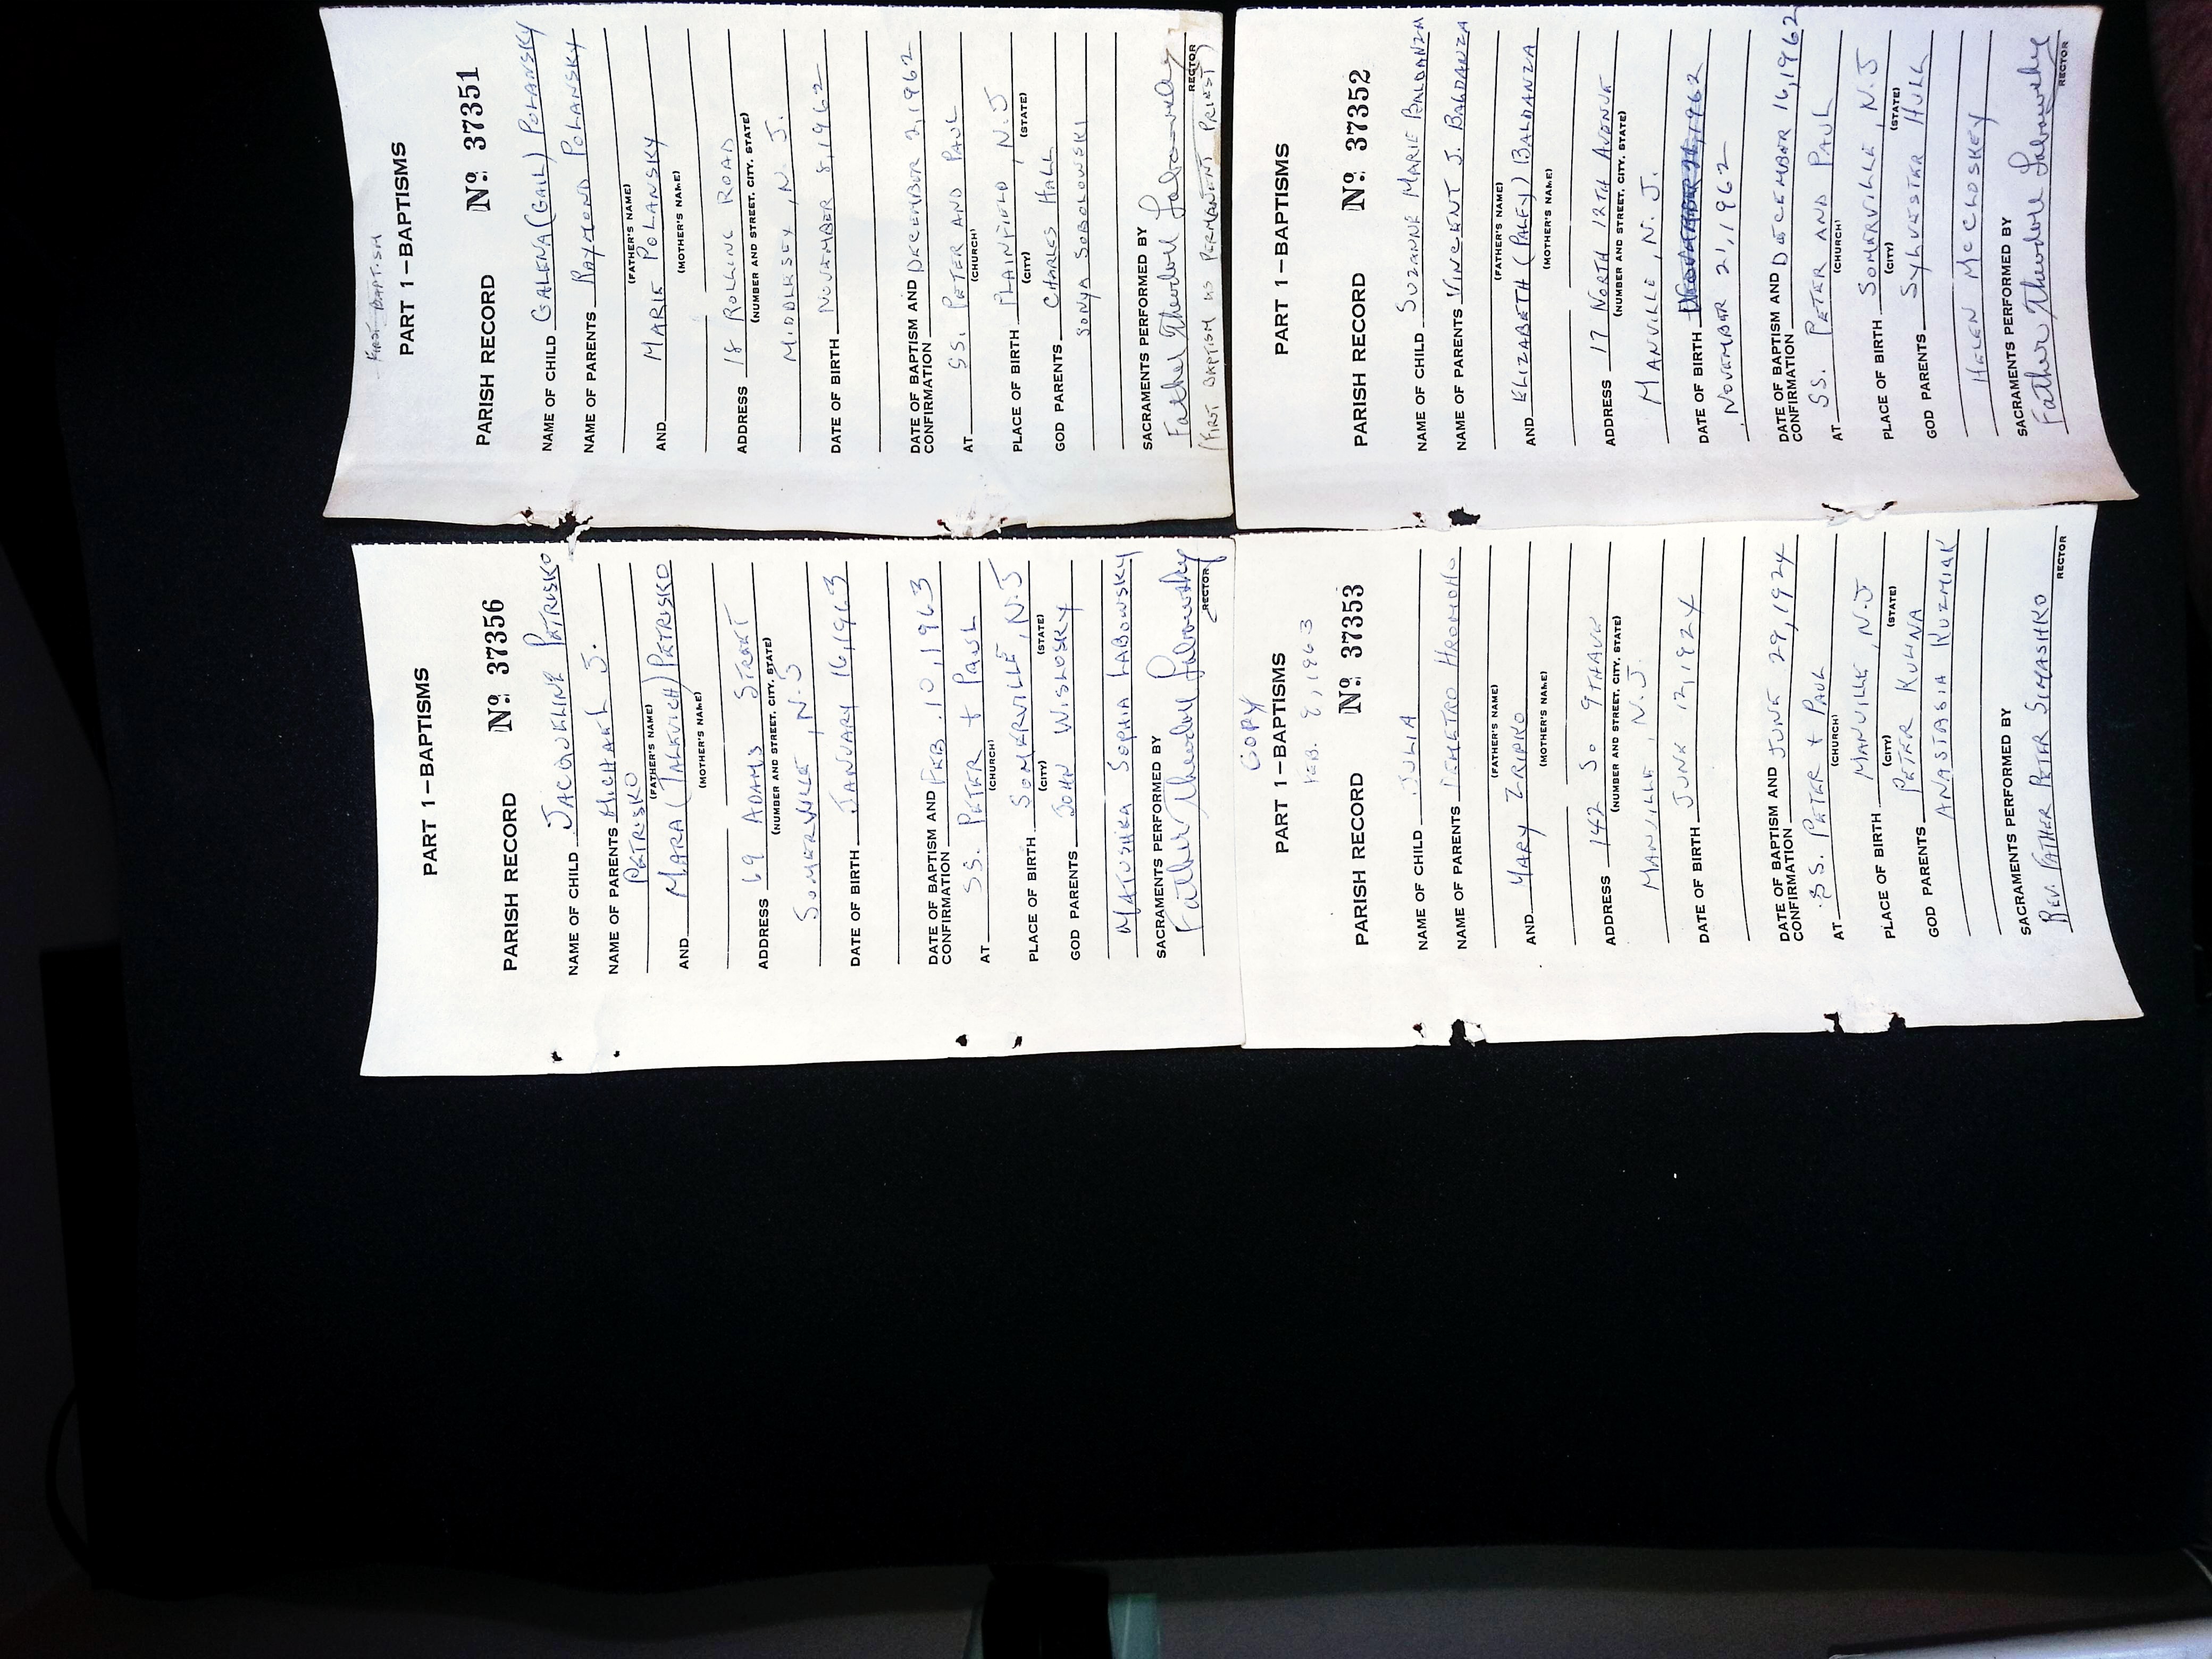 PART 1—BAPTISMS
PARISH RECORD No. 37356
NAME OF CHILD JACQUELINE PETRISKO
NAME OF PARENTS MICHAEL J.
PETRISKO
(FATHER'S NAME)
AND MARA (TALEVICH) PETRISKO
(MOTHER'S NAME)
ADDRESS 69 ADAMS STREET
(NUMBER AND STREET, CITY, STATE)
SOMERVILLE, N.J
DATE OF BIRTH JANUARY 16, 1963
DATE OF BAPTISM AND FEB. 10, 1963
CONFIRMATION
AT SS. PETER + PAUL
(CHURCH)
PLACE OF BIRTH SOMERVILLE, N.J
(CITY) (STATE)
GOD PARENTS JOHN WISLOSKY
MATUSHKA SOPHIA LABOWSKY
SACRAMENTS PERFORMED BY
Father Theodore Labowsky
RECTOR
FIRST BAPTISM
PART 1—BAPTISMS
PARISH RECORD No. 37351
NAME OF CHILD GALENA (GAIL) POLANSKY
NAME OF PARENTS RAYMOND POLANSKY
(FATHER'S NAME)
AND MARIE POLANSKY
(MOTHER'S NAME)
ADDRESS 18 ROLLING ROAD
(NUMBER AND STREET, CITY, STATE)
MIDDLESEX, N. J.
DATE OF BIRTH NOVEMBER 8, 1962
DATE OF BAPTISM AND DECEMBER 2, 1962
CONFIRMATION
AT SS. PETER AND PAUL
(CHURCH)
PLACE OF BIRTH PLAINFIELD, N.J
(CITY) (STATE)
GOD PARENTS CHARLES HALL
SONYA SOBOLOWSKI
SACRAMENTS PERFORMED BY
Father Theodore Labowsky
RECTOR
(FIRST BAPTISM AS PERMANENT PRIEST)
COPY
PART 1—BAPTISMS
FEB. 9, 1963
PARISH RECORD No. 37353
NAME OF CHILD JULIA
NAME OF PARENTS DEMETRO HROMOHO
(FATHER'S NAME)
AND MARY ZRIPKO
(MOTHER'S NAME)
ADDRESS 142 SO 9THAVE
(NUMBER AND STREET, CITY, STATE)
MANVILLE, N.J.
DATE OF BIRTH JUNE 12, 1924
DATE OF BAPTISM AND JUNE 29, 1924
CONFIRMATION
AT SS. PETER + PAUL
(CHURCH)
PLACE OF BIRTH MANVILLE, N.J
(CITY) (STATE)
GOD PARENTS PETER KULINA
ANASTASIA KUZMIAK
SACRAMENTS PERFORMED BY
REV. FATHER PETER SIMASHKO
RECTOR
PART 1—BAPTISMS
PARISH RECORD No. 37352
NAME OF CHILD SUZANNE MARIE BALDANZA
NAME OF PARENTS VINCENT J. BALDANZA
(FATHER'S NAME)
AND ELIZABETH (PALEY) BALDANZA
(MOTHER'S NAME)
ADDRESS 17 NORTH 12TH AVENUE
(NUMBER AND STREET, CITY, STATE)
MANVILLE, N. J.
DATE OF BIRTH NOVEMBER 21, 1962
NOVEMBER 21, 1962
DATE OF BAPTISM AND DECEMBER 16, 1962
CONFIRMATION
AT SS. PETER AND PAUL
(CHURCH)
PLACE OF BIRTH SOMERVILLE, N.J
(CITY) (STATE)
GOD PARENTS SYLVESTER HULL
HELEN McCLOSKEY
SACRAMENTS PERFORMED BY
Father Theodore Labowsky
RECTOR